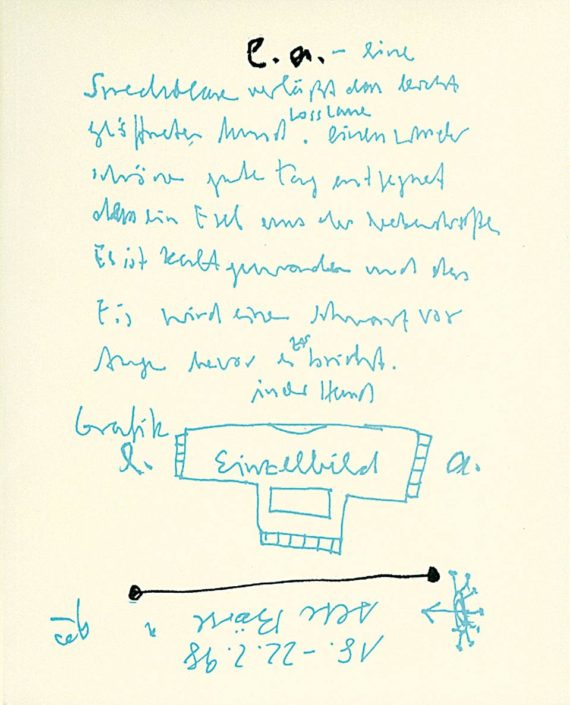 e. a. – eine
Sprechblase verläßt den leicht
geöffneten Mund. einen wunder
schöne gute Tag entgegnet
ein Esel aus der Nebenstraße
Es ist kalt geworden und das
Eis wird einem schwarz vor
Auge bevor es zerbricht.
in der Hand
Grafik
e. Einzelbild a.
18.-22.2.98